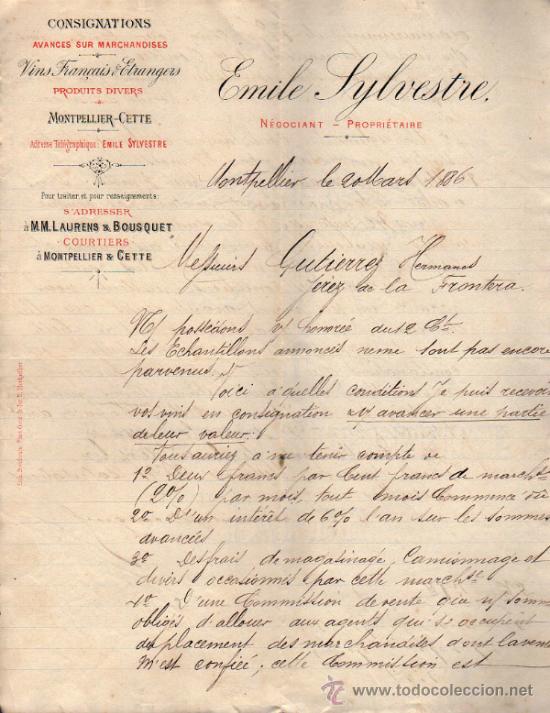 CONSIGNATIONS
AVANCES SUR MARCHANDISES
Vins Français & Etrangers
PRODUITS DIVERS
à
MONTPELLIER-CETTE
Adresse Télégraphique: EMILE SYLVESTRE
Pour traiter et pour renseignements
S'ADRESSER
à M.M. LAURENS & BOUSQUET
COURTIERS
à MONTPELLIER & CETTE
Emile Sylvestre.
NÉGOCIANT - PROPRIÉTAIRE
Montpellier le 20 Mars 1886
Messieurs Gutierrez Hermanos
Jérez de la Frontera.
N/ possédons v/ honorée du 12 Ct.
Les Echantillons annoncés ne me sont pas encore
parvenus.
Voici à quelles conditions Je puis recevoir
vos vins en consignation & v/ avancer une partie
de leur valeur.
Vous auriez à me tenir compte de
1º Deux francs par Cent francs de marchse
(2%) par mois, tout mois Commencé
2º D'un intérêt de 6% l'an sur les sommes
avancées
3º Des frais de magasinage, Camionnage et
divers occasionnés par cette marchse
4º D'une Commission de vente que n/ somm
obligés d'allouer aux agents qui s'occupent
du placement des marchandises dont la vente
m'est confiée; cette Commission est
www.todocoleccion.net